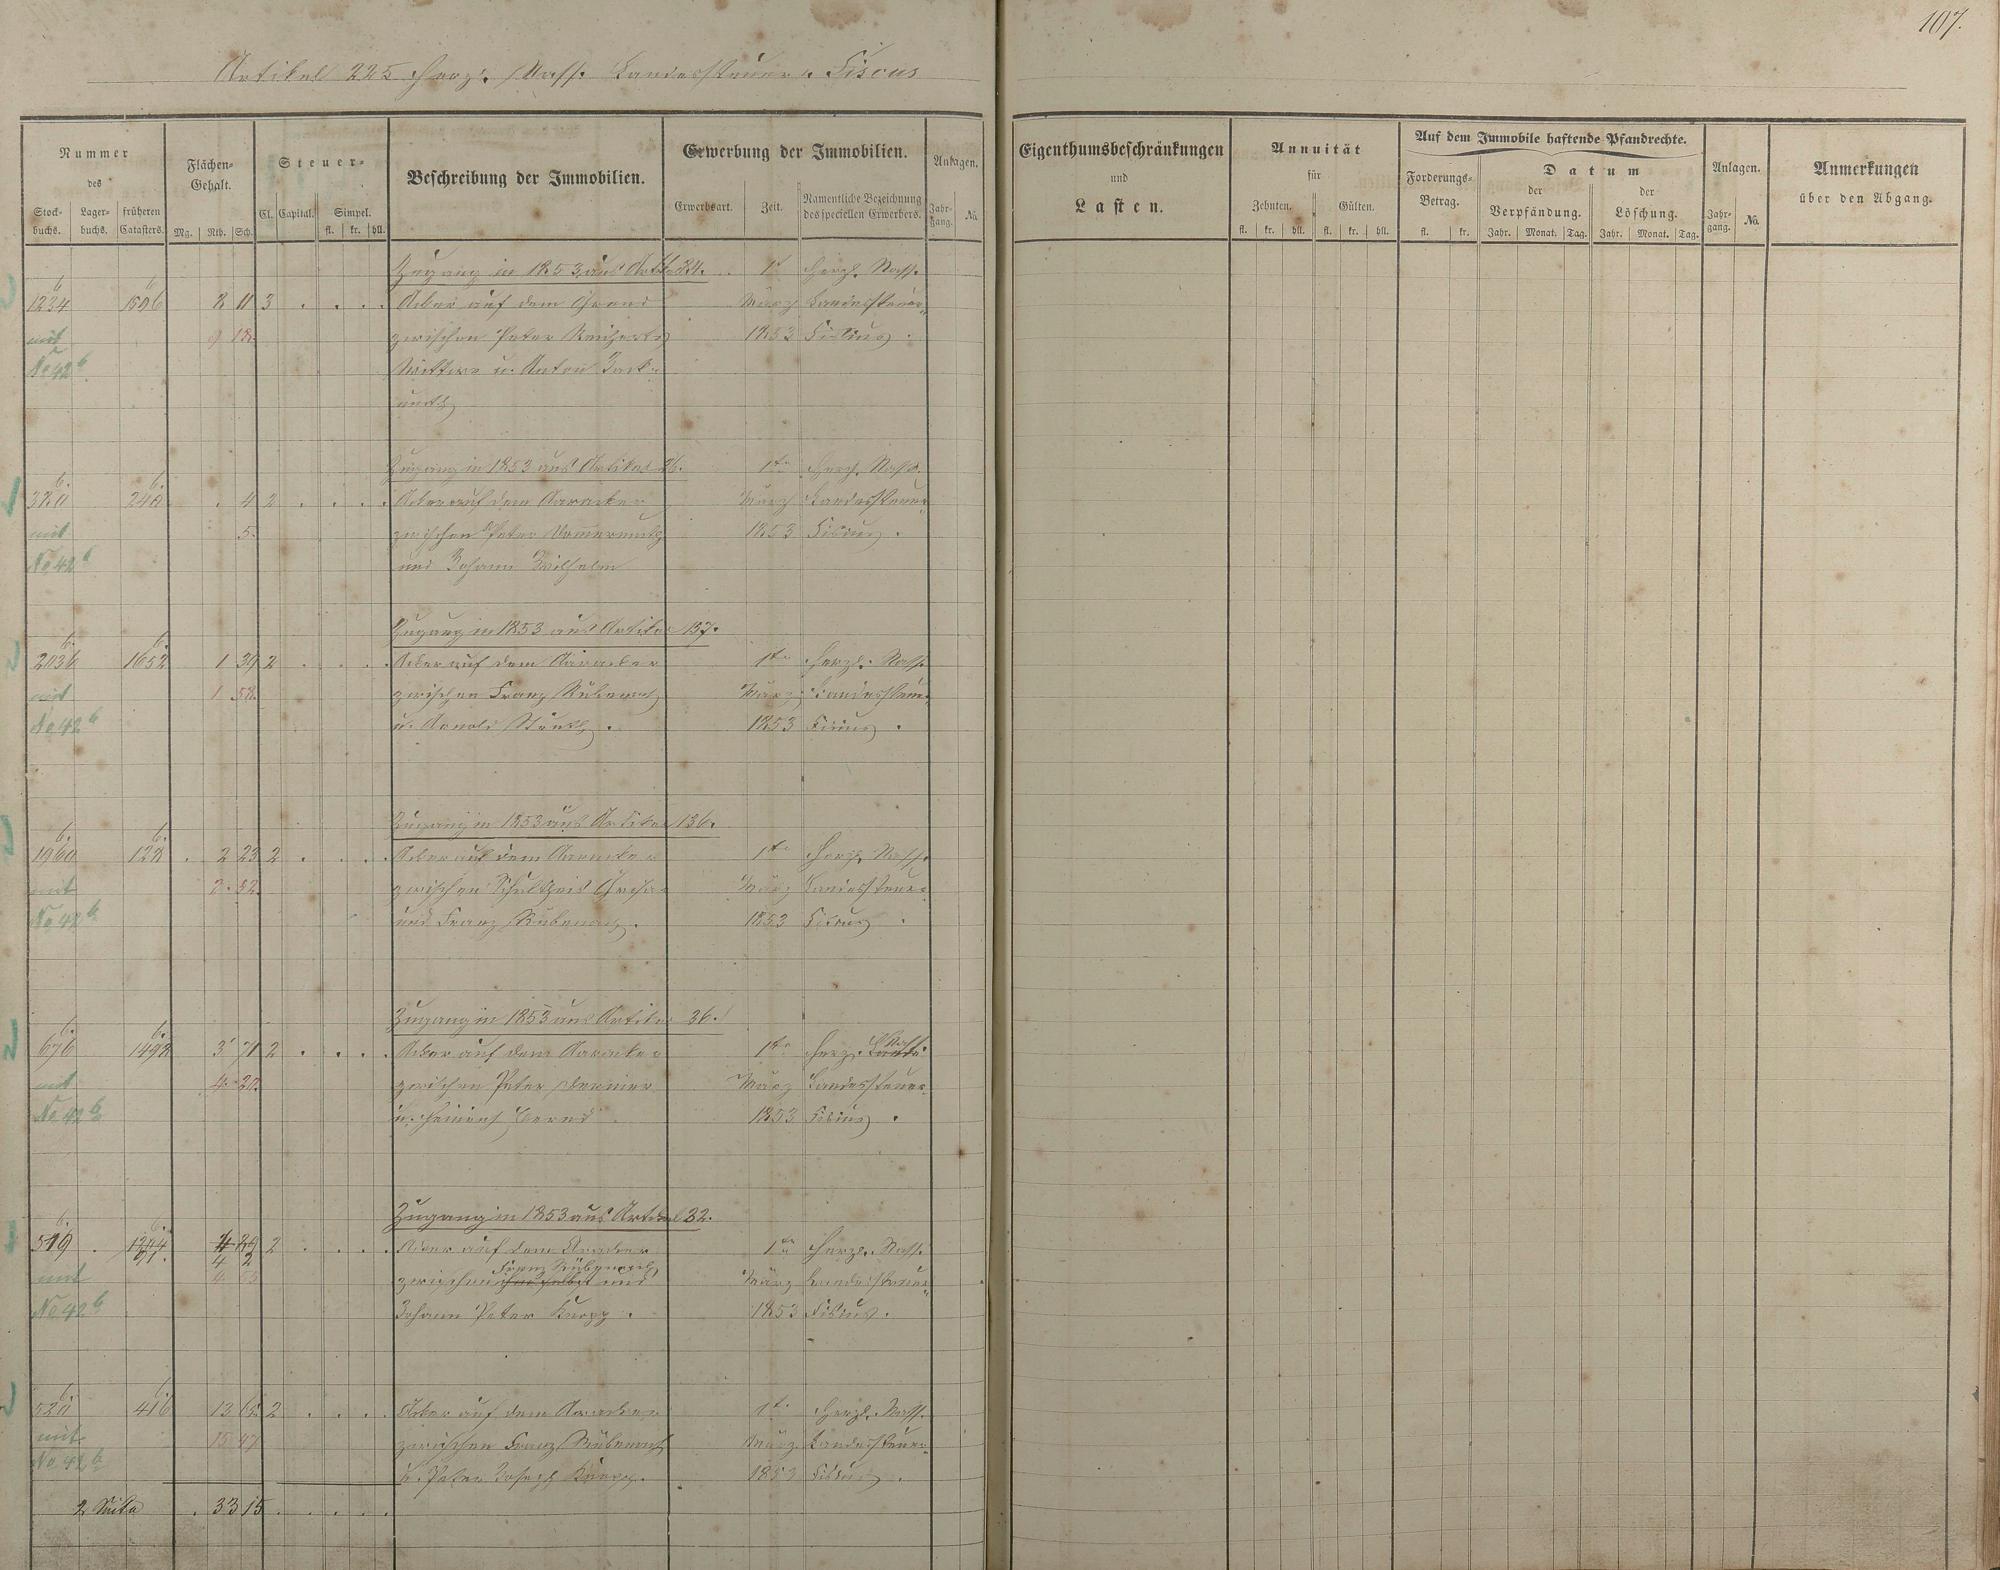 107.
Artikel 225 Herzl. Nass. Landessteuer-Fiscus
Nummer des
Stockbuchs. Lagerbuchs. früheren Catasters.
Flächen-Gehalt.
Mg. Rth. Sch.
Steuer-
Cl. Capital. Simpel.
fl. kr. hll.
Beschreibung der Immobilien.
Erwerbung der Immobilien.
Erwerbsart. Zeit. Namentliche Bezeichnung des speciellen Erwerbers.
Anlagen.
Jahrgang. No.
Eigenthumsbeschränkungen
und
Lasten.
Annuität
für
Zehnten. Gülten.
fl. kr. hll. fl. kr. hll.
Auf dem Immobile haftende Pfandrechte.
Forderungs-Betrag.
fl. kr.
Datum
der Verpfändung. der Löschung.
Jahr. Monat. Tag. Jahr. Monat. Tag.
Anlagen.
Jahrgang. No.
Anmerkungen
über den Abgang.
Zugang in 1853 aus Artikel 1t Herzl. Nass.
1234 b 1506 b 3 Acker auf dem März Landessteuer-
mit 9 18. zwischen Peter 1853 Fiscus.
No 42 b Wittwe u. Anton
Zugang in 1853 aus Artikel 26. 1te Herzl. Nass.
b. b. . 4 2 Acker auf dem Aaracker März Landessteuer-
mit 5. zwischen Peter 1853 Fiscus.
No 42 b und Johann Wilhelm
Zugang in 1853 aus Artikel 137.
2036 b. 1652 b. 1 39 2 Acker auf dem Aaracker 1te Herzl. Nass.
mit 1 58. zwischen Franz Rübenach März Landessteuer-
No 42 b u. Arnold 1853 Fiscus.
Zugang in 1853 aus Artikel 136.
1960 b. 128 b. 2 23 2 Acker auf dem Aaracker 1te Herzl. Nass.
mit 2. 52. zwischen Schultheis März Landessteuer-
No 42 b und Franz Rübenach. 1853 Fiscus.
Zugang in 1853 aus Artikel 36.
676 b. 1498 b. 3 71 2 Acker auf dem Aaracker 1te Herzl. Nass.
mit 4. 20. zwischen Peter März Landessteuer-
No 42 b u. Heinrich 1853 Fiscus.
Zugang in 1853 aus Artikel 32.
519 b. 2 Acker auf dem Aaracker 1te Herzl. Nass.
4 2
mit zwischen Franz Rübenach und März Landessteuer-
No 42 b Johann Peter Knopp. 1853 Fiscus.
520 b. 416 b 13 65 2 Acker auf dem Aaracker 1te Herzl. Nass.
mit 15 47 zwischen Franz Rübenach März Landessteuer-
No 42 b u. Peter Joseph Knopp. 1853 Fiscus.
33 15